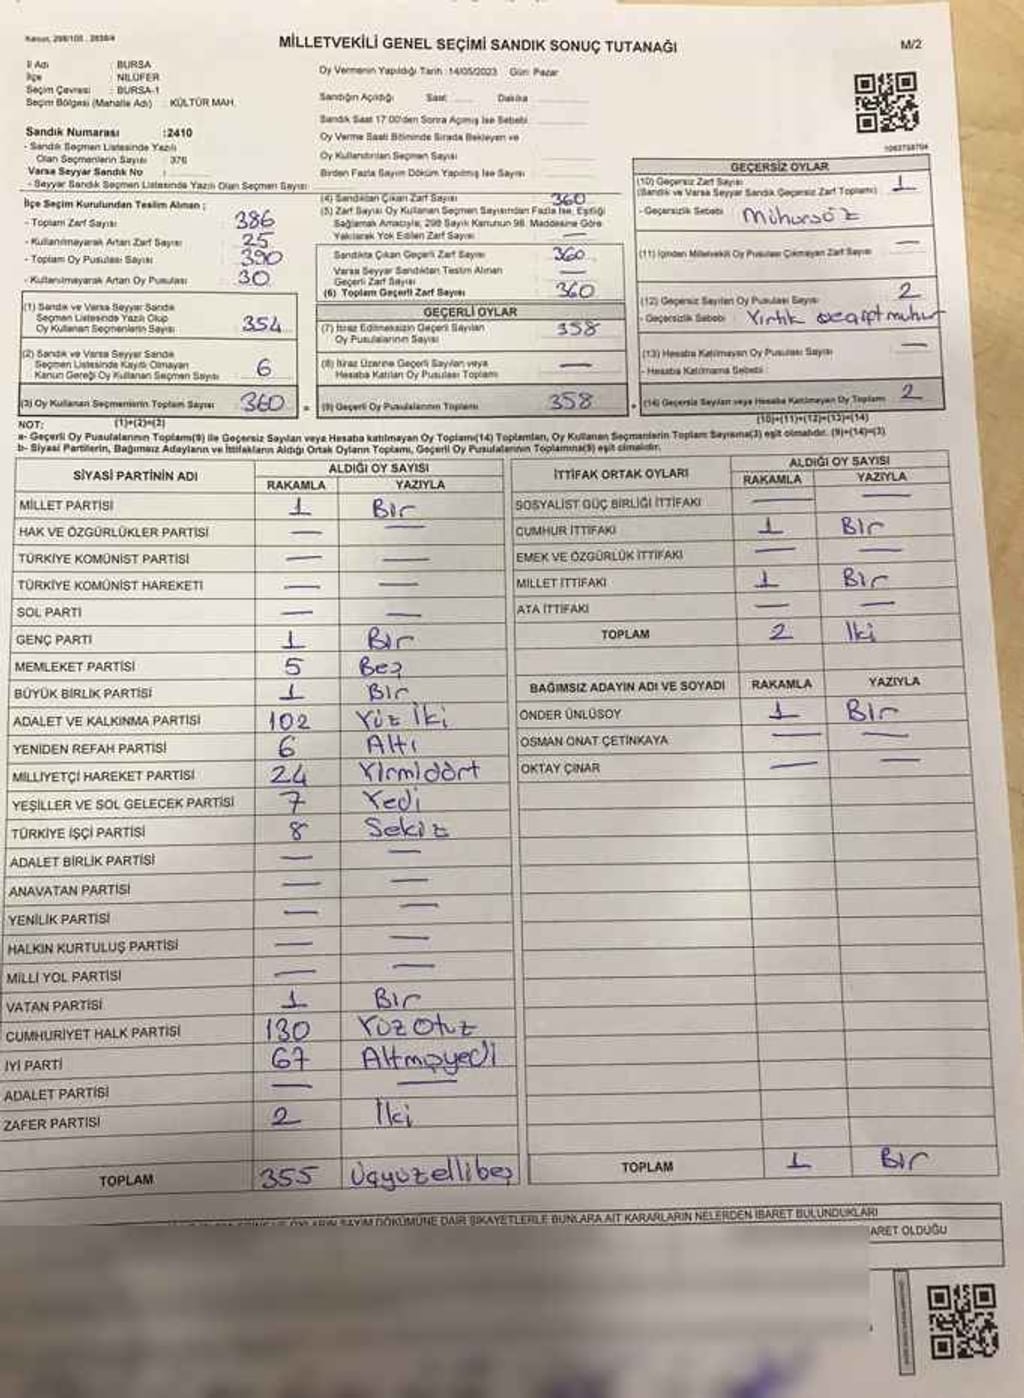 Kanun, 298/105 . 2839/4
MİLLETVEKİLİ GENEL SEÇİMİ SANDIK SONUÇ TUTANAĞI
M/2
İl Adı : BURSA
İlçe : NİLÜFER
Seçim Çevresi : BURSA-1
Seçim Bölgesi (Mahalle Adı) : KÜLTÜR MAH.
Sandık Numarası :2410
- Sandık Seçmen Listesinde Yazılı
Olan Seçmenlerin Sayısı : 376
Varsa Seyyar Sandık No :
- Seyyar Sandık Seçmen Listesinde Yazılı Olan Seçmen Sayısı
İlçe Seçim Kurulundan Teslim Alınan ;
- Toplam Zarf Sayısı 386
- Kullanılmayarak Artan Zarf Sayısı 25
- Toplam Oy Pusulası Sayısı 390
- Kullanılmayarak Artan Oy Pusulası 30
(1) Sandık ve Varsa Seyyar Sandık
Seçmen Listesinde Yazılı Olup
Oy Kullanan Seçmenlerin Sayısı 354
(2) Sandık ve Varsa Seyyar Sandık
Seçmen Listesinde Kayıtlı Olmayan
Kanun Gereği Oy Kullanan Seçmen Sayısı 6
(3) Oy Kullanan Seçmenlerin Toplam Sayısı 360
(1)+(2)=(3)
Oy Vermenin Yapıldığı Tarih :14/05/2023 Gün: Pazar
Sandığın Açıldığı Saat Dakika
Sandık Saat 17:00'den Sonra Açılmış İse Sebebi
Oy Verme Saati Bitiminde Sırada Bekleyen ve
Oy Kullandırılan Seçmen Sayısı
Birden Fazla Sayım Döküm Yapılmış İse Sayısı
(4) Sandıktan Çıkan Zarf Sayısı 360
(5) Zarf Sayısı Oy Kullanan Seçmen Sayısından Fazla İse, Eşitliği
Sağlamak Amacıyla, 298 Sayılı Kanunun 98. Maddesine Göre
Yakılarak Yok Edilen Zarf Sayısı —
Sandıkta Çıkan Geçerli Zarf Sayısı 360
Varsa Seyyar Sandıktan Teslim Alınan
Geçerli Zarf Sayısı —
(6) Toplam Geçerli Zarf Sayısı 360
GEÇERLİ OYLAR
(7) İtiraz Edilmeksizin Geçerli Sayılan
Oy Pusulalarının Sayısı 358
(8) İtiraz Üzerine Geçerli Sayılan veya
Hesaba Katılan Oy Pusulası Toplamı —
= (9) Geçerli Oy Pusulalarının Toplamı 358
GEÇERSİZ OYLAR
(10) Geçersiz Zarf Sayısı
(Sandık ve Varsa Seyyar Sandık Geçersiz Zarf Toplamı) 1
- Geçersizlik Sebebi Mühürsüz
(11) İçinden Milletvekili Oy Pusulası Çıkmayan Zarf Sayısı —
(12) Geçersiz Sayılan Oy Pusulası Sayısı 2
- Geçersizlik Sebebi Yırtık
(13) Hesaba Katılmayan Oy Pusulası Sayısı —
- Hesaba Katılmama Sebebi
(14) Geçersiz Sayılan veya Hesaba Katılmayan Oy Toplamı 2
(10)+(11)+(12)+(13)=(14)
NOT:
a- Geçerli Oy Pusulalarının Toplamı(9) ile Geçersiz Sayılan veya Hesaba katılmayan Oy Toplamı(14) Toplamları, Oy Kullanan Seçmenlerin Toplam Sayısına(3) eşit olmalıdır. (9)+(14)=(3)
b- Siyasi Partilerin, Bağımsız Adayların ve İttifakların Aldığı Ortak Oyların Toplamı, Geçerli Oy Pusulalarının Toplamına(9) eşit olmalıdır.
SİYASİ PARTİNİN ADI ALDIĞI OY SAYISI
RAKAMLA YAZIYLA
MİLLET PARTİSİ 1 Bir
HAK VE ÖZGÜRLÜKLER PARTİSİ — —
TÜRKİYE KOMÜNİST PARTİSİ — —
TÜRKİYE KOMÜNİST HAREKETİ — —
SOL PARTİ — —
GENÇ PARTİ 1 Bir
MEMLEKET PARTİSİ 5 Beş
BÜYÜK BİRLİK PARTİSİ 1 Bir
ADALET VE KALKINMA PARTİSİ 102 Yüz İki
YENİDEN REFAH PARTİSİ 6 Altı
MİLLİYETÇİ HAREKET PARTİSİ 24 Yirmidört
YEŞİLLER VE SOL GELECEK PARTİSİ 7 Yedi
TÜRKİYE İŞÇİ PARTİSİ 8 Sekiz
ADALET BİRLİK PARTİSİ — —
ANAVATAN PARTİSİ — —
YENİLİK PARTİSİ — —
HALKIN KURTULUŞ PARTİSİ — —
MİLLİ YOL PARTİSİ — —
VATAN PARTİSİ 1 Bir
CUMHURİYET HALK PARTİSİ 130 Yüz Otuz
İYİ PARTİ 67 Altmışyedi
ADALET PARTİSİ — —
ZAFER PARTİSİ 2 İki
TOPLAM 355 Üçyüzellibeş
İTTİFAK ORTAK OYLARI ALDIĞI OY SAYISI
RAKAMLA YAZIYLA
SOSYALİST GÜÇ BİRLİĞİ İTTİFAKI — —
CUMHUR İTTİFAKI 1 Bir
EMEK VE ÖZGÜRLÜK İTTİFAKI — —
MİLLET İTTİFAKI 1 Bir
ATA İTTİFAKI — —
TOPLAM 2 İki
BAĞIMSIZ ADAYIN ADI VE SOYADI RAKAMLA YAZIYLA
ÖNDER ÜNLÜSOY 1 Bir
OSMAN ONAT ÇETİNKAYA — —
OKTAY ÇINAR — —
TOPLAM 1 Bir
SAYIM DÖKÜMÜNE DAİR ŞİKAYETLERLE BUNLARA AİT KARARLARIN NELERDEN İBARET BULUNDUKLARI
OLDUĞU